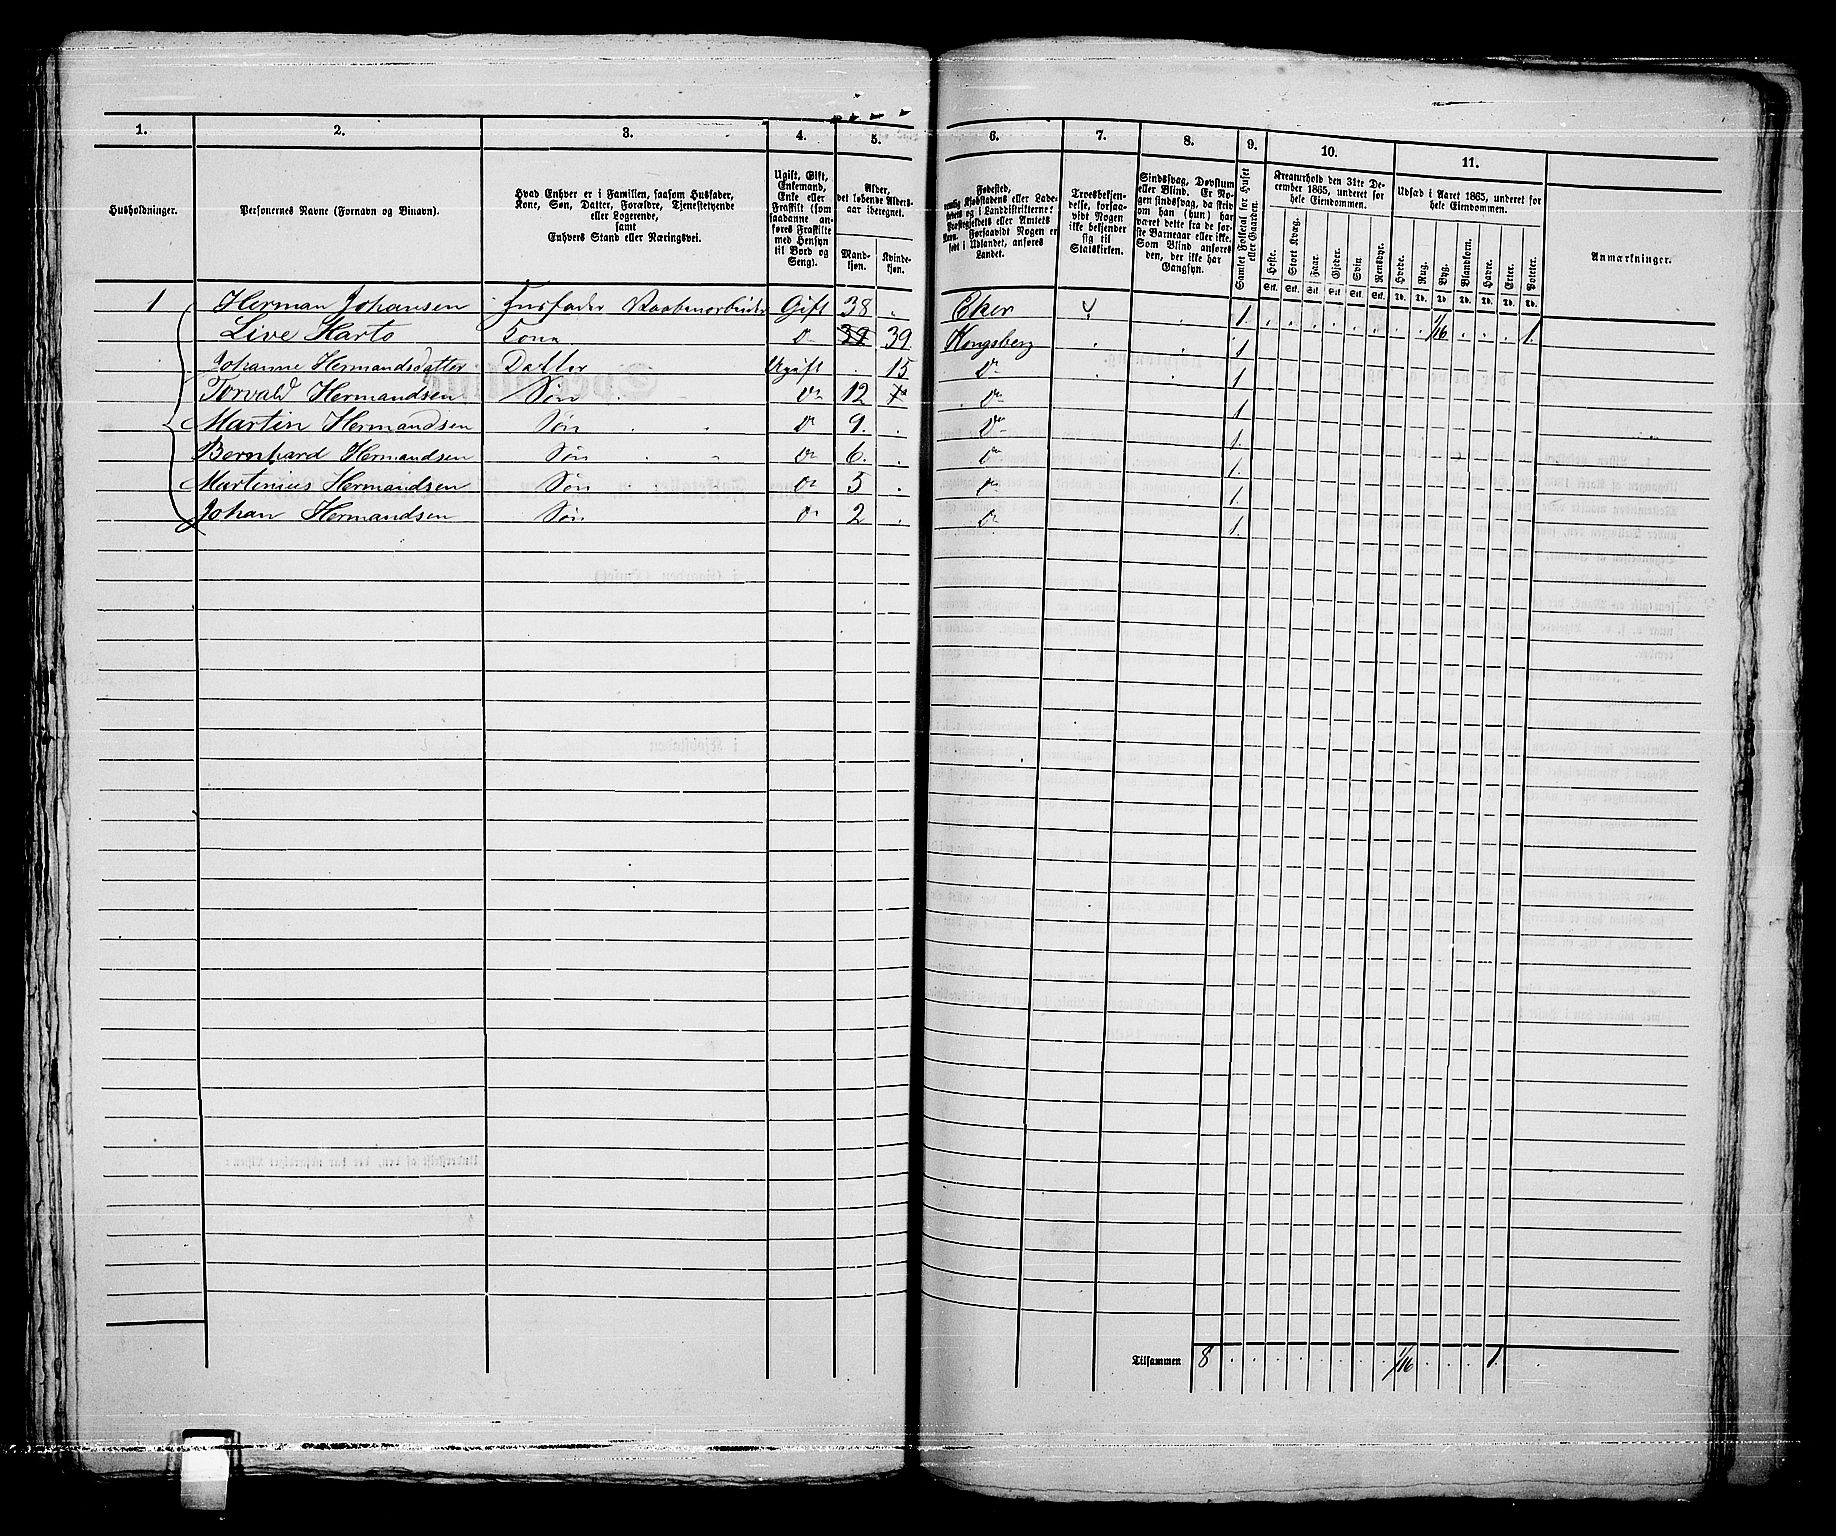 1. 2. 3. 4. 5. 6. 7. 8. 9. 10. 11.
Husholdninger.
Personernes Navne (Fornavn og Binavn).
Hvad Enhver er i Familien, saasom Husfader,
Kone, Søn, Datter, Forældre, Tjenestetyende
eller Logerende,
samt
Enhvers Stand eller Næringsvei.
Ugift, Gift,
Enkemand,
Enke eller
Fraskilt (som
saadanne an-
føres Fraskilte
med Hensyn
til Bord og
Seng).
Alder,
det løbende Alders-
aar iberegnet.
Mand-
kjøn.
Kvinde-
kjøn.
Fødested,
nemlig Kjøbstadens eller Lade-
stedets og i Landdistrikterne:
Præstegjeldets eller Amtets
Navn. Forsaavidt Nogen er
født i Udlandet, anføres
Landet.
Troesbekjen-
delse, forsaa-
vidt Nogen
ikke bekjender
sig til
Statskirken.
Sindssvag, Døvstum
eller Blind. Er No-
gen sindssvag, da skriv
om han (hun) har
været dette fra de før-
ste Barneaar eller ikke.
Som Blind anføres
den, der ikke har
Gangsyn.
Samlet Folketal for Huset
eller Gaarden.
Kreaturhold den 31te De-
cember 1865, underet for
hele Eiendommen.
Heste.
Stort Kvæg.
Faar.
Gjeder.
Svin.
Rensdyr.
Stk. Stk. Stk. Stk. Stk. Stk.
Udsæd i Aaret 1865, underet for
hele Eiendommen.
Hvede.
Rug.
Byg.
Blandkorn.
Havre.
Erter.
Poteter.
Td. Td. Td. Td. Td. Td. Td.
Anmærkninger.
1 Herman Johansen Husfader Gift 38 . Eker 1 1/16 1.
Live Harto Kone do 39 39 Kongsberg 1
Johanne Hermandsdatter Datter Ugift . 15 do 1
Torvald Hermandsen Søn do 12 do 1
Martin Hermandsen Søn do 9. . do 1.
Bernhard Hermandsen Søn do 6. . do 1.
Martinius Hermandsen Søn do 5 . do 1
Johan Hermandsen Søn do 2 . do 1.
Tilsammen 8 1/16 1.